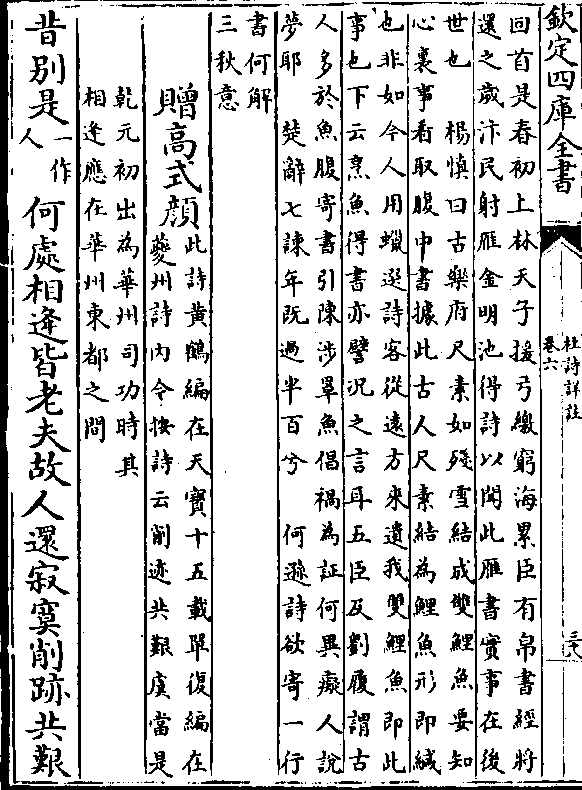 欽定四庫全書
杜詩詳註
卷六
回首是春初上林天子援弓繳窮海累臣有帛書經將
還之歲汴民射雁金明池得詩以聞此雁書實事在後
世也　楊慎曰古樂府尺素如殘雪結成雙鯉魚要知
心裏事看取腹中書據此古人尺素結為鯉魚形即緘
也非如今人用蠟選詩客從遠方來遺我雙鯉魚即此
事也下云烹魚得書亦譬況之言耳五臣及劉履謂古
人多於魚腹寄書引陳涉罩魚倡禍為証何異癡人說
夢耶　楚辭七諫年既過半百兮　何遜詩欲寄一行
書何解
三秋意
贈高式顔
此詩黄鶴編在天寳十五載單復編在
夔州詩内今按詩云削迹共艱虞當是
乾元初出為華州司功時其
相逢應在華州東都之間
昔别是一作人何處相逢皆老夫故人還寂寞削跡共艱